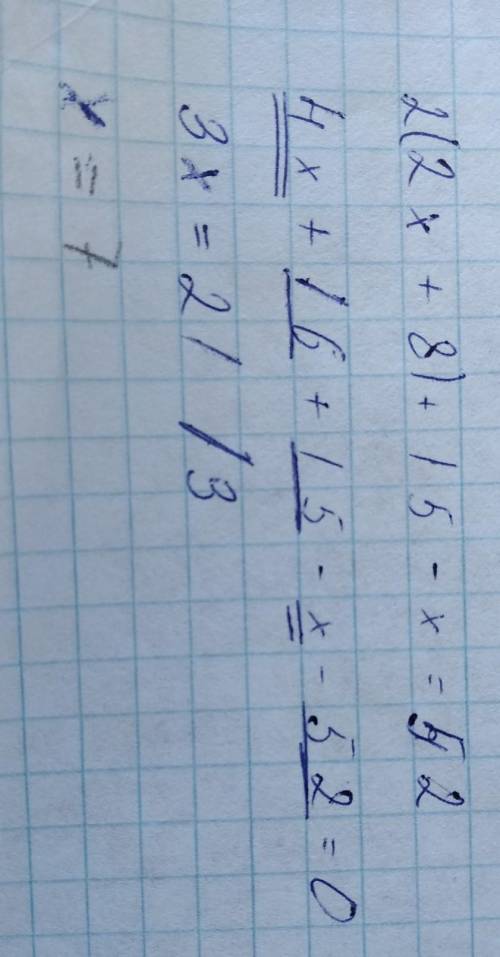 2(2x + 8) + 15 - x = 52
4x + 16 + 15 - x - 52 = 0
3x = 21 /3
x = 7